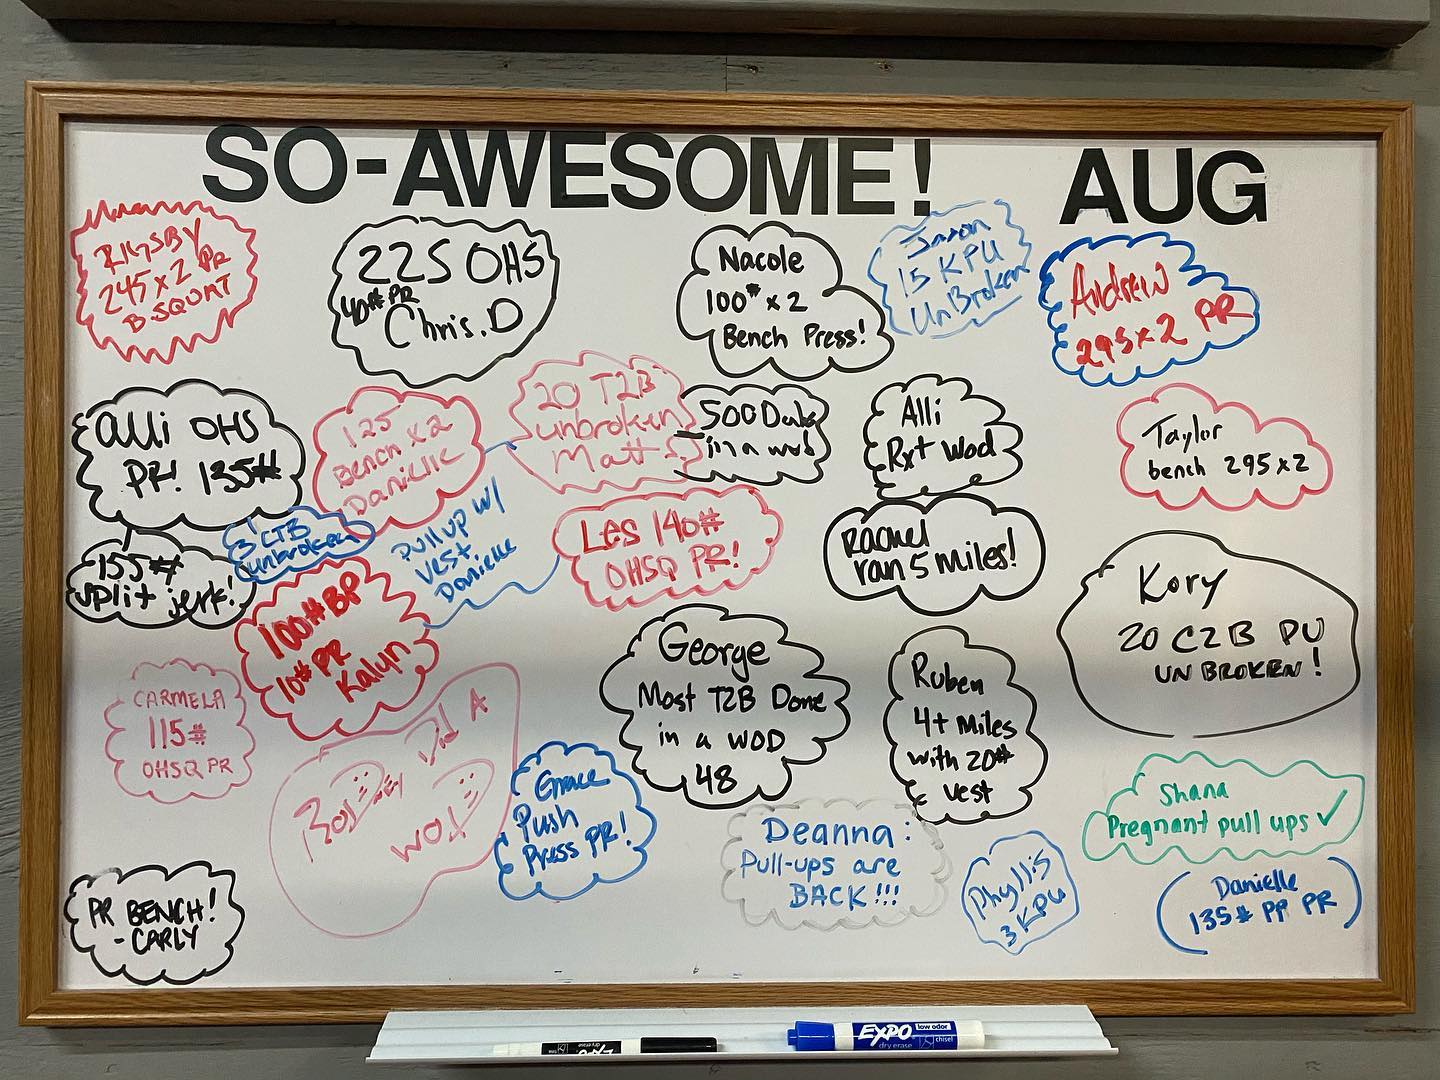 SO-AWESOME! AUG
RIGSBY
245 x 2 PR
B-SQUAT
225 OHS
40# PR
Chris.D
Nacole
100# x 2
Bench Press!
Jason
15 KPU
UnBroken
Andrew
295 x 2 PR
alli OHS
PR! 135#
125
Bench x 2
Danielle
20 T2B
unbroken
Matt S.
500 Dubs
in a wod
Alli
Rx+ Wod
Taylor
bench 295 x 2
155#
split jerk!
3 CTB
unbroken
PULL UP W/
VEST
Danielle
Les 140#
OHSQ PR!
Rachel
ran 5 miles!
Kory
20 C2B PU
UNBROKEN!
100# BP
10# PR
Kalyn
CARMELA
115#
OHSQ PR
George
Most T2B Done
in a WOD
48
Ruben
4+ Miles
with 20#
vest
Did A
WOD
Grace
Push
Press PR!
Deanna:
Pull-ups are
BACK!!!
Phyllis
3 KPU
Shana
Pregnant pull ups ✓
Danielle
135# PP PR
PR BENCH!
- CARLY
EXPO
low odor
dry erase
chisel
EXPO